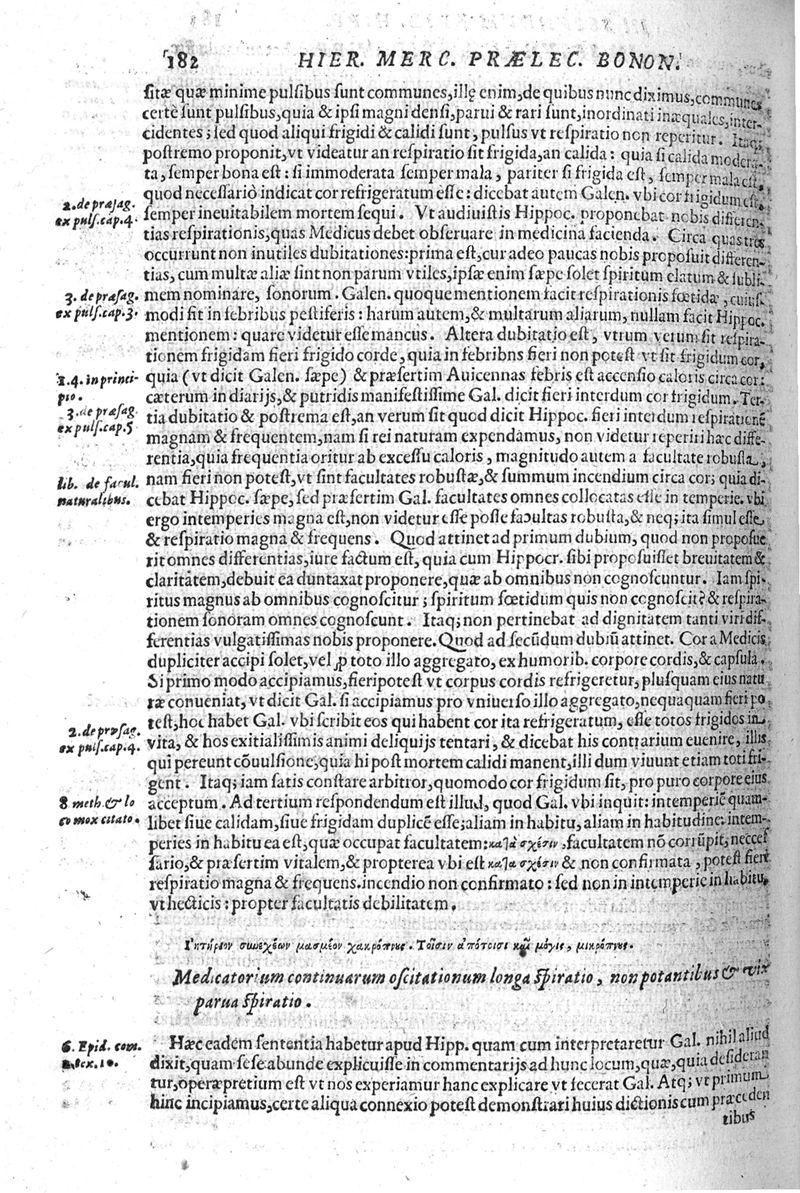 182 HIER. MERC. PRÆLEC. BONON.
ſitæ quæ minime pulſibus ſunt communes, illę enim, de quibus nunc diximus, communes
certè ſunt pulſibus, quia & ipſi magni denſi, parui & rari ſunt, inordinati inæquales, inter-
cidentes; ſed quod aliqui frigidi & calidi ſunt, pulſus vt reſpiratio non reperitur. Itaq;
poſtremo proponit, vt videatur an reſpiratio ſit frigida, an calida: quia ſi calida modera-
ta, ſemper bona eſt: ſi immoderata ſemper mala, pariter ſi frigida eſt, ſemper mala eſt,
quod neceſſariò indicat cor refrigeratum eſſe: dicebat autem Galen. vbi cor frigidum eſt,
2. de præſag.
ex pulſ. cap. 4.
ſemper ineuitabilem mortem ſequi. Vt audiuiſtis Hippoc. proponebat nobis differen-
tias reſpirationis, quas Medicus debet obſeruare in medicina facienda. Circa quas tres
occurrunt non inutiles dubitationes: prima eſt, cur adeo paucas nobis propoſuit differen-
tias, cum multæ aliæ ſint non parum vtiles, ipſæ enim ſæpe ſolet ſpiritum elatum & ſubli-
3. de præſag.
ex pulſ. cap. 3.
mem nominare, ſonorum. Galen. quoque mentionem facit reſpirationis fœtidæ, cuiuſ-
modi ſit in febribus peſtiferis: harum autem, & multarum aliarum, nullam facit Hippoc.
mentionem: quare videtur eſſe mancus. Altera dubitatio eſt, vtrum verum ſit reſpira-
tionem frigidam fieri frigido corde, quia in febribns fieri non poteſt vt ſit frigidum cor,
1. 4. in princi-
pio.
quia (vt dicit Galen. ſæpe) & præſertim Auicennas febris eſt accenſio caloris circa cor:
cæterum in diarijs, & putridis manifeſtiſſime Gal. dicit fieri interdum cor frigidum. Ter-
3. de præſag.
ex pulſ. cap. 5
tia dubitatio & poſtrema eſt, an verum ſit quod dicit Hippoc. fieri interdum reſpirationē
magnam & frequentem, nam ſi rei naturam expendamus, non videtur reperiri hæc diffe-
rentia, quia frequentia oritur ab exceſſu caloris, magnitudo autem a facultate robuſta,
lib. de facul.
naturalibus.
nam fieri non poteſt, vt ſint facultates robuſtæ, & ſummum incendium circa cor; quia di-
cebat Hippoc. ſæpe, ſed præſertim Gal. facultates omnes collocatas eſſe in temperie. vbi
ergo intemperies magna eſt, non videtur eſſe poſſe facultas robuſta, & neq; ita ſimul eſſe
& reſpiratio magna & frequens. Quod attinet ad primum dubium, quod non propoſue
rit omnes differentias, iure factum eſt, quia cum Hippocr. ſibi propoſuiſſet breuitatem &
claritatem, debuit ea duntaxat proponere, quæ ab omnibus non cognoſcuntur. Iam ſpi-
ritus magnus ab omnibus cognoſcitur; ſpiritum fœtidum quis non cognoſcit? & reſpira-
tionem ſonoram omnes cognoſcunt. Itaq; non pertinebat ad dignitatem tanti viri dif-
ferentias vulgatiſſimas nobis proponere. Quod ad ſecūdum dubiū attinet. Cor a Medicis
dupliciter accipi ſolet, vel ꝓ toto illo aggregato, ex humorib. corpore cordis, & capſula.
Si primo modo accipiamus, fieri poteſt vt corpus cordis refrigeretur, pluſquam eius natu
ræ conueniat, vt dicit Gal. ſi accipiamus pro vniuerſo illo aggregato, nequaquam fieri po
2. de præſag.
ex pulſ. cap. 4.
teſt, hoc habet Gal. vbi ſcribit eos qui habent cor ita refrigeratum, eſſe totos frigidos in
vita, & hos exitialiſſimis animi deliquijs tentari, & dicebat his contrarium euenire, illis
qui pereunt cōuulſione, quia hi poſt mortem calidi manent, illi dum viuunt etiam toti fri-
gent. Itaq; iam ſatis conſtare arbitror, quomodo cor frigidum ſit, pro puro corpore eius
8 meth. & lo
co mox citato.
acceptum. Ad tertium reſpondendum eſt illud, quod Gal. vbi inquit: intemperiē quam-
libet ſiue calidam, ſiue frigidam duplicē eſſe; aliam in habitu, aliam in habitudine: intem-
peries in habitu ea eſt, quæ occupat facultatem: κατὰ σχέσιν, facultatem nō corrūpit, neceſ
ſario, & præſertim vitalem, & propterea vbi eſt κατα σχέσιν & non confirmata, poteſt fieri
reſpiratio magna & frequens. incendio non confirmato: ſed non in intemperie in habitu,
vt hecticis: propter facultatis debilitatem.
συνεχέων
Medicatorium continuarum oſcitationum longa ſpiratio, non potantibus & vix
parua ſpiratio.
6. Epid. com.
Hæc eadem ſententia habetur apud Hipp. quam cum interpretaretur Gal. nihil aliud
dixit, quam ſeſe abunde explicuiſſe in commentarijs ad hunc locum, quæ, quia deſideran
tur, operæpretium eſt vt nos experiamur hanc explicare vt fecerat Gal. Atq; vt primum
hinc incipiamus, certe aliqua connexio poteſt demonſtrari huius dictionis cum præceden
tibus